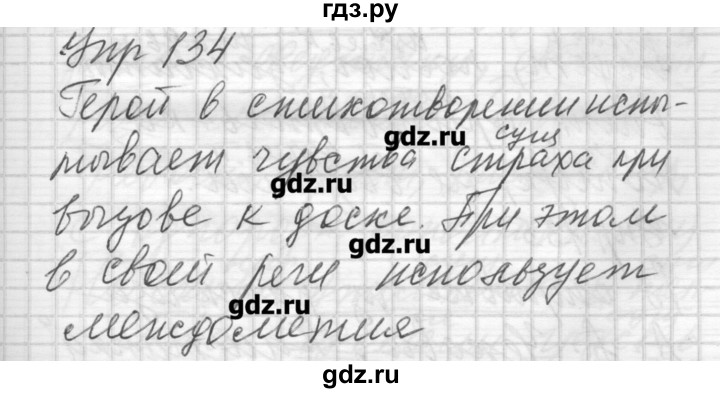 гдз.ру
Упр 134
Герой в стихотворении испы-
тывает чувства страха при
сущ
gdz.ru
gdz.ru
вызове к доске. При этом
gdz.ru
в своей речи использует
gdz.ru
междометия
gdz.ru